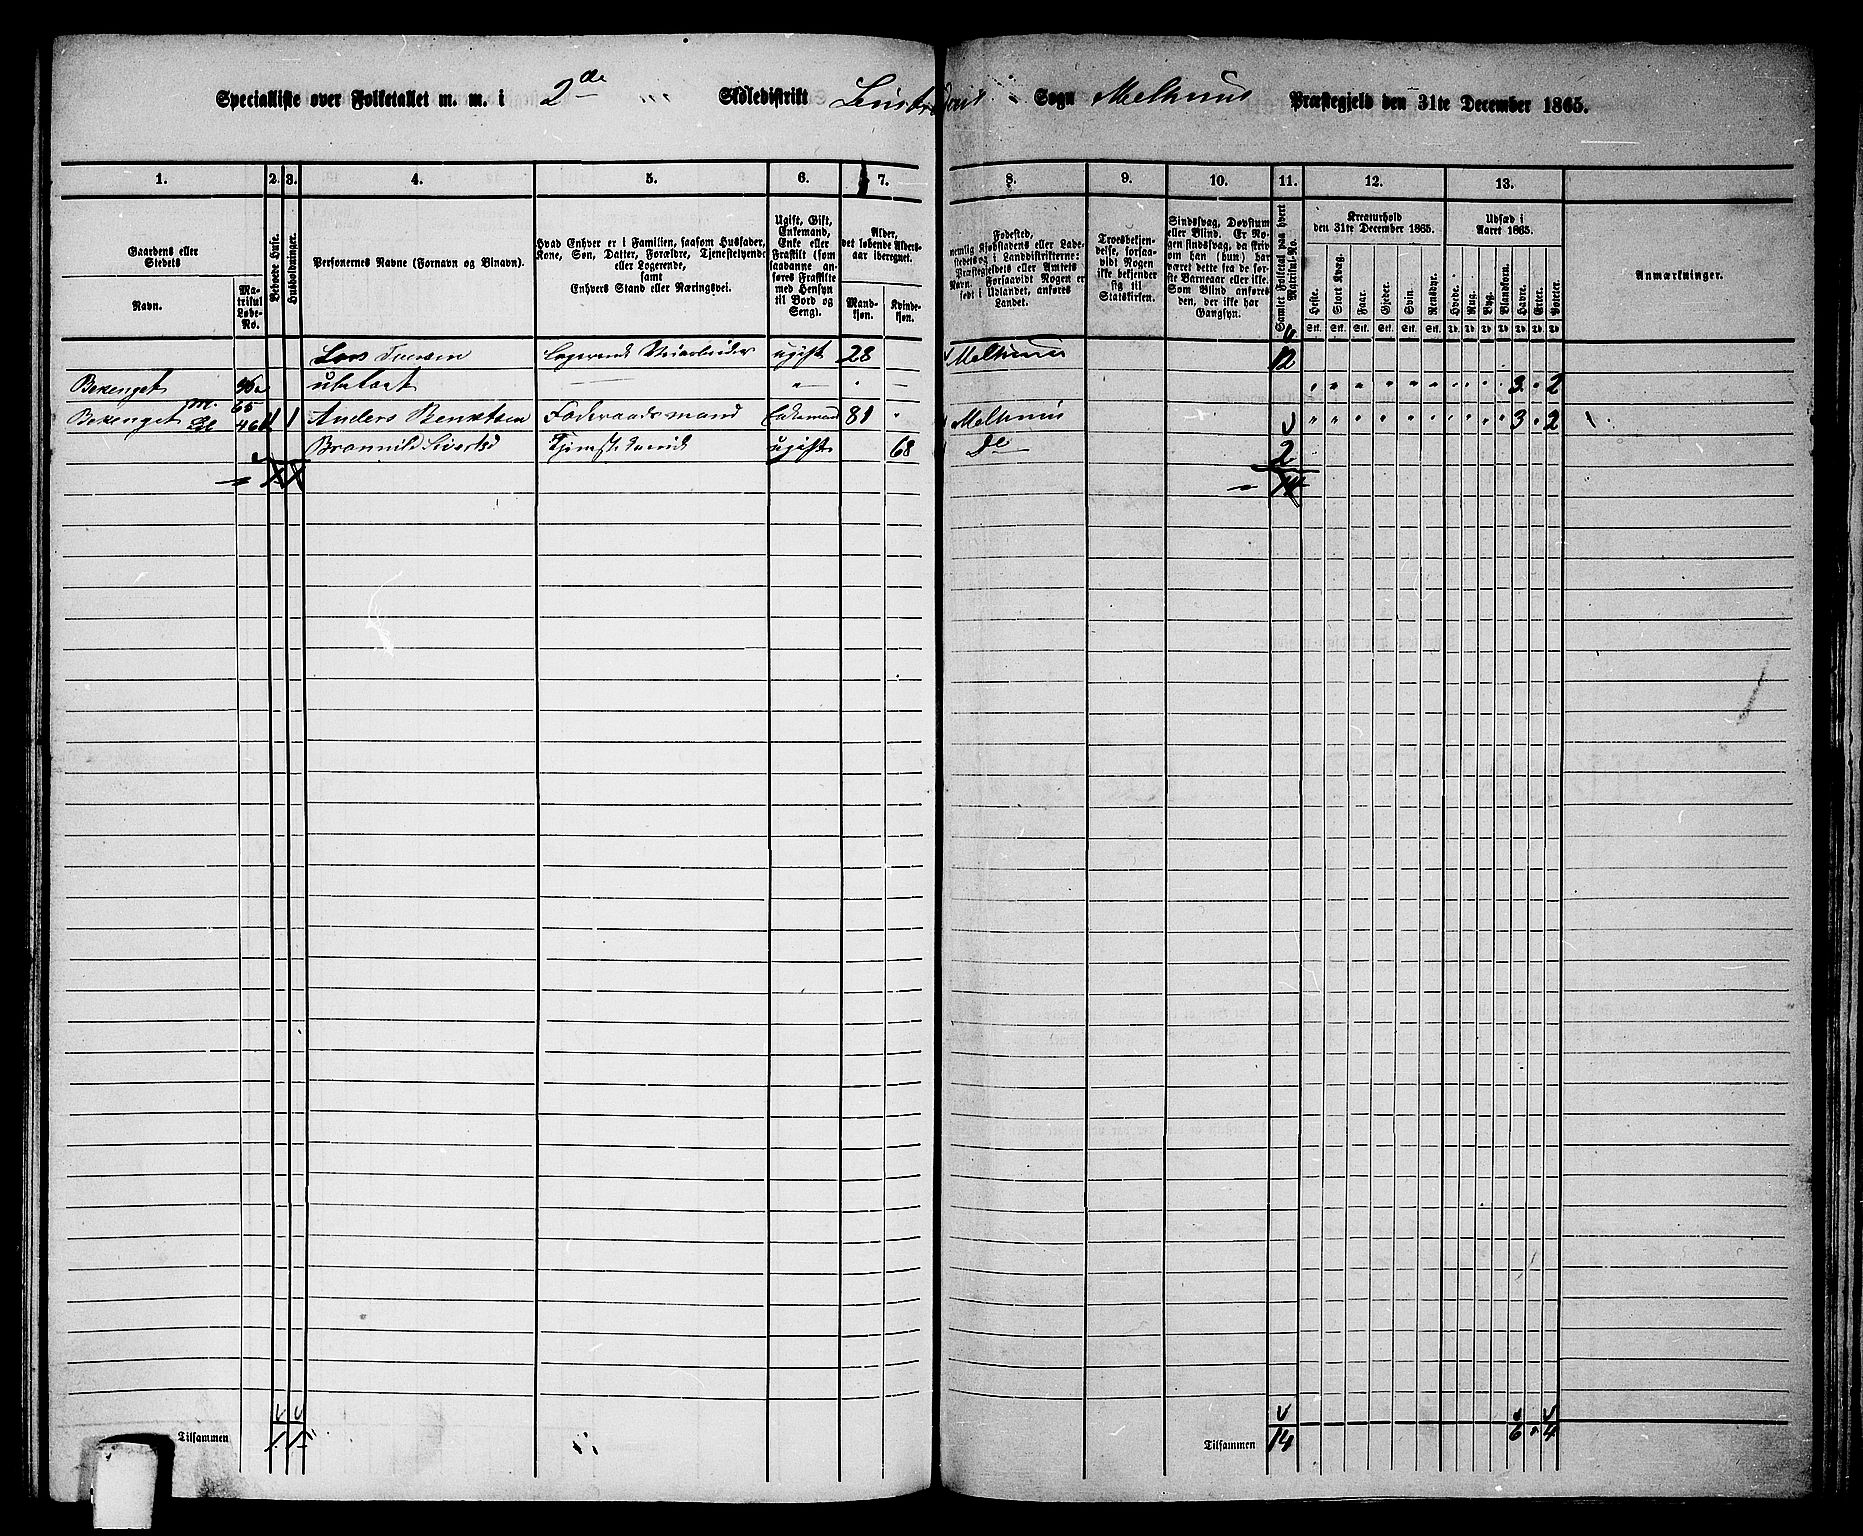 Specialliste over Folketallet m. m. i 2de Skoledistrikt Sogn Melhuus Præstegjeld den 31te December 1865.
1. 2. 3. 4. 5. 6. 7. 8. 9. 10. 11. 12. 13.
Gaardens eller Stedets
Navn.
Matrikul Løbe-No.
Beboede Huse.
Husholdninger.
Personernes Navne (Fornavn og Binavn).
Hvad Enhver er i Familien, saasom Husfader, Kone, Søn, Datter, Forældre, Tjenestetyende eller Logerende,
samt
Enhvers Stand eller Næringsvei.
Ugift, Gift, Enkemand, Enke eller Fraskilt (som saadanne anføres Fraskilte med Hensyn til Bord og Seng).
Alder, det løbende Aldersaar iberegnet.
Mandkjøn.
Kvindekjøn.
Fødested,
nemlig Kjøbstadens eller Ladestedets og i Landdistrikterne: Præstegjeldets eller Amtets Navn. Forsaavidt Nogen er født i Udlandet, anføres Landet.
Troesbekjendelse, forsaavidt Nogen ikke bekjender sig til Statskirken.
Sindssvag, Døvstum eller Blind. Er Nogen sindssvag, da skriv om han (hun) har været dette fra de første Barneaar eller ikke. Som Blind anføres den, der ikke har Gangsyn.
Samlet Folketal paa hvert Matrikul-No.
Kreaturhold
den 31te December 1865.
Heste. Stort Kvæg. Faar. Gjeder. Svin. Rensdyr.
Udsæd i
Aaret 1865.
Hvede. Rug. Byg. Blandkorn. Havre. Erter. Poteter.
Anmærkninger.
Lars logerende Veiarbeider ugift 28 Melhuus 12
Bekenget ubeboet 3 2
Bekenget 65 1 Anders Benktsen Føderaadsmand Enkemand 81 Melhuus 3 2
Tjenestetyende ugift 68 Do 2
14
Tilsammen
Tilsammen 14 6 4